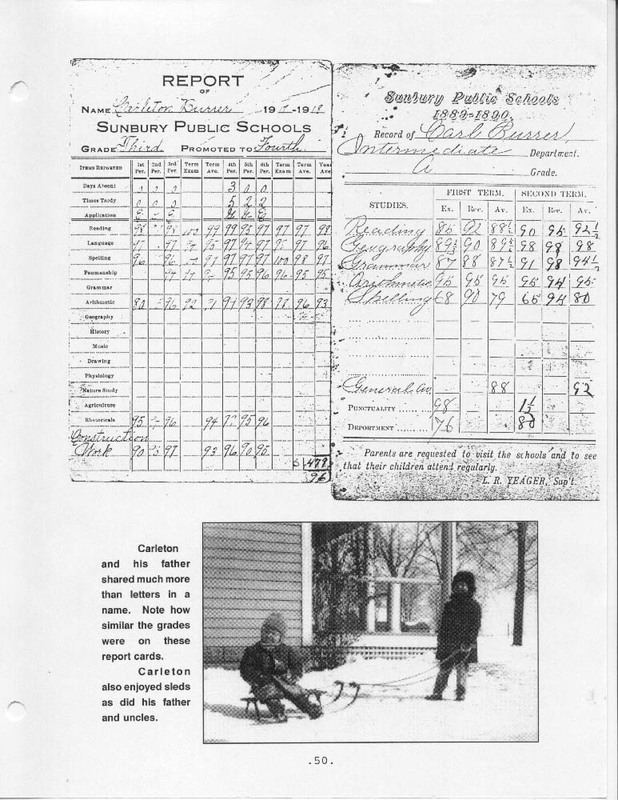 REPORT
OF
NAME Carleton Burrer 191 -1918
SUNBURY PUBLIC SCHOOLS
GRADE Third PROMOTED TO Fourth
ITEMS REPORTED 1st Per. 2nd Per. 3rd Per. Term Exam Term Ave. 4th Per. 5th Per. 6th Per. Term Exam Term Ave. Year Ave.
Days Absent 3 0 0
Times Tardy 0 0 0 5 2 2
Application
Reading 98 98 100 99 99 95 97 97 97 98
Language 97 97 97 96
Spelling 96 96 97 97 97 97 100 98 97
Penmanship 95 95 96 96 95 95
Grammar
Arithmetic 80 96 92 91 93 98 96 93
Geography
History
Music
Drawing
Physiology
Nature Study
Agriculture
Rhetoricals 95 96 94 95 96
Construction
Work 90 97 93 96 90 95
479
96
Sunbury Public Schools
1889-1890
Record of Carl Burrer,
Intermediate Department.
A Grade.
STUDIES. FIRST TERM. SECOND TERM.
Ex. Rec. Av. Ex. Rec. Av.
Reading 85 92 88½ 90 95 92½
Geography 89½ 90 89½ 98 98 98
Grammar 87 88 87½ 91 98 94½
Arithmetic 95 95 95 95 94 95
Spelling 68 90 79 65 94 80
General Av. 88 92
PUNCTUALITY 98 1½
DEPORTMENT 76 80
Parents are requested to visit the schools and to see
that their children attend regularly.
L. R. YEAGER, Sup't.
Carleton
and his father
shared much more
than letters in a
name. Note how
similar the grades
were on these
report cards.
Carleton
also enjoyed sleds
as did his father
and uncles.
.50.